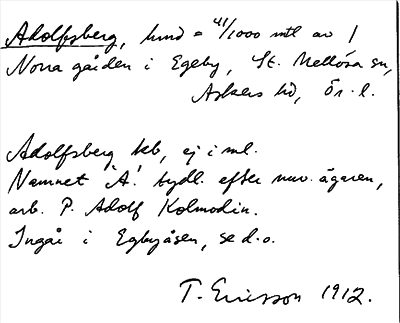 Adolfsberg, lund = 41/1000 mtl av 1
Norra gården i Egeby, St. Mellösa sn,
Askers hd, Ör. l.
Adolfsberg kb, ej i ml.
Namnet "A". tydl. efter nuv. ägaren,
arb. P. Adolf Kolmodin.
Ingår i Egbyåsen, se d.o.
T. Ericsson 1912.